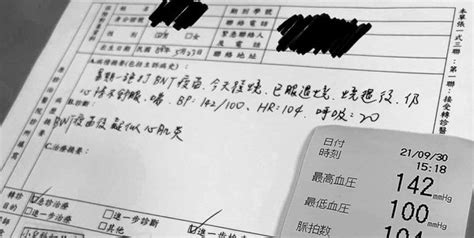 期別學號
身分證號
聯絡電話
□男
□女
緊急聯絡人
及電話
出生日期 民國 年5月27日
A.病情摘要(包括主訴病史):
星期一接打BNT疫苗,今天發燒,已服退燒,燒退後,仍
心悸不舒服、喘、BP:142/100、HR:104、呼吸:20
BNT疫苗後疑似心肌炎
C.治療摘要:
轉診目的
急診治療
□進一步診斷
□進一步治療
□其他
本單張一式三聯:第一聯:接受轉診醫
日付 21/09/30
時刻 15:18
最高血圧 142 mmHg
最低血圧 100 mmHg
脈拍数 104